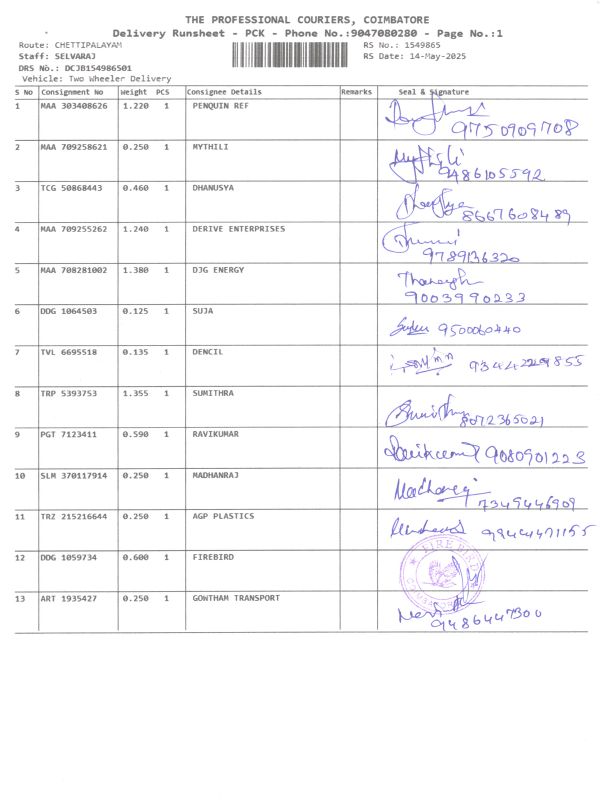 THE PROFESSIONAL COURIERS, COIMBATORE
Delivery Runsheet - PCK - Phone No.:9047080280 - Page No.:1
Route: CHETTIPALAYAM RS No.: 1549865
Staff: SELVARAJ RS Date: 14-May-2025
DRS No.: DCJB154986501
Vehicle: Two Wheeler Delivery
S NO Consignment No Weight PCS Consignee Details Remarks Seal & Signature
1 MAA 303408626 1.220 1 PENQUIN REF
9750909708
2 MAA 709258621 0.250 1 MYTHILI Mythili
9486105592
3 TCG 50868443 0.460 1 DHANUSYA
8667608489
4 MAA 709255262 1.240 1 DERIVE ENTERPRISES
9789136320
5 MAA 708281002 1.380 1 DJG ENERGY
9003990233
6 DDG 1064503 0.125 1 SUJA 9500060440
7 TVL 6695518 0.135 1 DENCIL
8 TRP 5393753 1.355 1 SUMITHRA Sumithra
8072365021
9 PGT 7123411 0.590 1 RAVIKUMAR Ravikumar 9080901223
10 SLM 370117914 0.250 1 MADHANRAJ Madhanraj
7349446909
11 TRZ 215216644 0.250 1 AGP PLASTICS 9844471155
12 DDG 1059734 0.600 1 FIREBIRD FIRE BIRD
13 ART 1935427 0.250 1 GOWTHAM TRANSPORT
9486447300